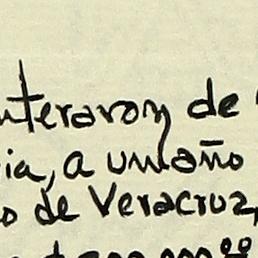 nteraron de
ia, a un año
o de Veracruz,